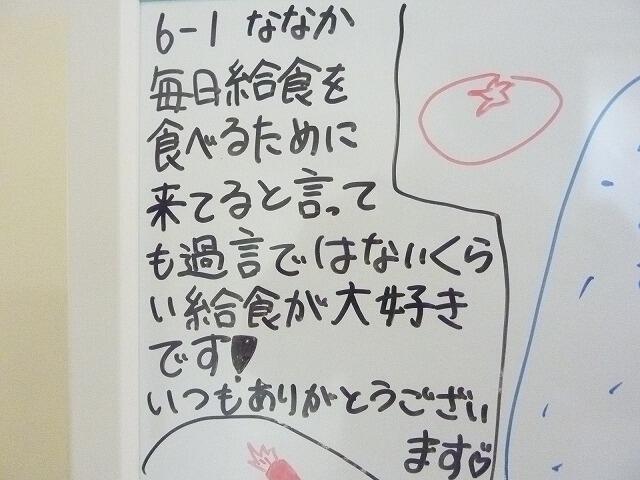 6-1 ななか
毎日給食を
食べるために
来てると言って
も過言ではないくら
い給食が大好き
です♥
いつもありがとうござい
ます♡